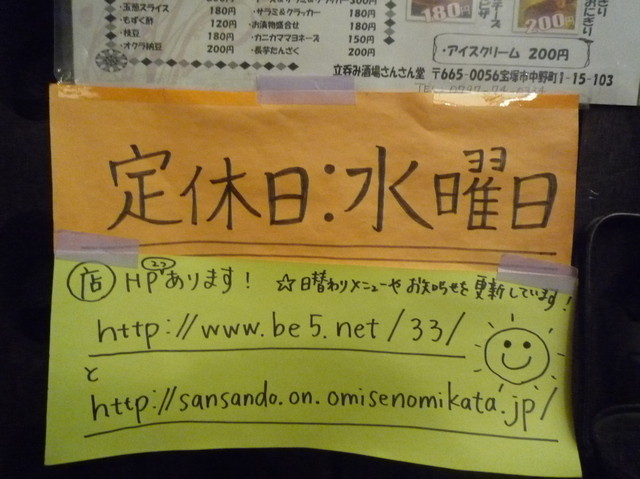 ・玉葱スライス 180円
・もずく酢 120円
・枝豆 180円
・オクラ納豆 200円
・サラミ&クラッカー 180円
・お漬物盛合せ 180円
・カニカママヨネーズ 150円
・長芋たんざく 200円
180円
200円
・アイスクリーム 200円
立呑み酒場さんさん堂 〒665-0056宝塚市中野町1-15-103
定休日:水曜日
店 HPあります! ☆日替わりメニューや お知らせを更新しています!
http://www.be5.net/33/
と
http://sansando.on.omisenomikata.jp/